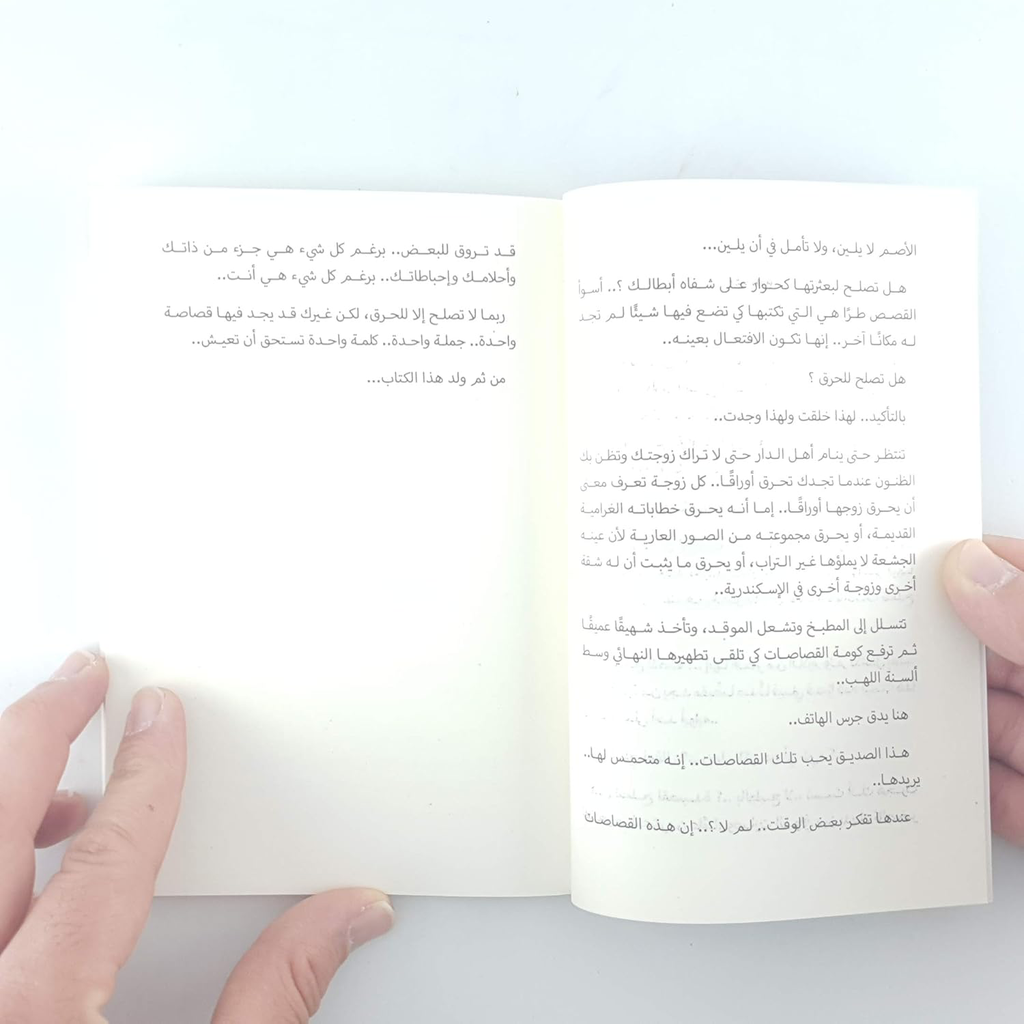 الأصم لا يلين، ولا تأمل في أن يلين...
هل تصلح لبعثرتها كحوار على شفاه أبطالك ؟.. أسوأ
القصص طرًا هي التي تكتبها كي تضع فيها شيئًا لم تجد
له مكانًا آخر.. إنها تكون الافتعال بعينه..
هل تصلح للحرق ؟
بالتأكيد.. لهذا خلقت ولهذا وجدت..
تنتظر حتى ينام أهل الدار حتى لا تراك زوجتك وتظن بك
الظنون عندما تجدك تحرق أوراقًا.. كل زوجة تعرف معنى
أن يحرق زوجها أوراقًا.. إما أنه يحرق خطاباته الغرامية
القديمة، أو يحرق مجموعته من الصور العارية لأن عينه
الجشعة لا يملؤها غير التراب، أو يحرق ما يثبت أن له شقة
أخرى وزوجة أخرى في الإسكندرية..
تتسلل إلى المطبخ وتشعل الموقد، وتأخذ شهيقًا عميقًا
ثم ترفع كومة القصاصات كي تلقى تطهيرها النهائي وسط
ألسنة اللهب..
هنا يدق جرس الهاتف..
هذا الصديق يحب تلك القصاصات.. إنه متحمس لها..
يريدها..
عندها تفكر بعض الوقت.. لم لا ؟.. إن هذه القصاصات
قد تروق للبعض.. برغم كل شيء هي جزء من ذاتك
وأحلامك وإحباطاتك.. برغم كل شيء هي أنت..
ربما لا تصلح إلا للحرق، لكن غيرك قد يجد فيها قصاصة
واحدة.. جملة واحدة.. كلمة واحدة تستحق أن تعيش..
من ثم ولد هذا الكتاب...